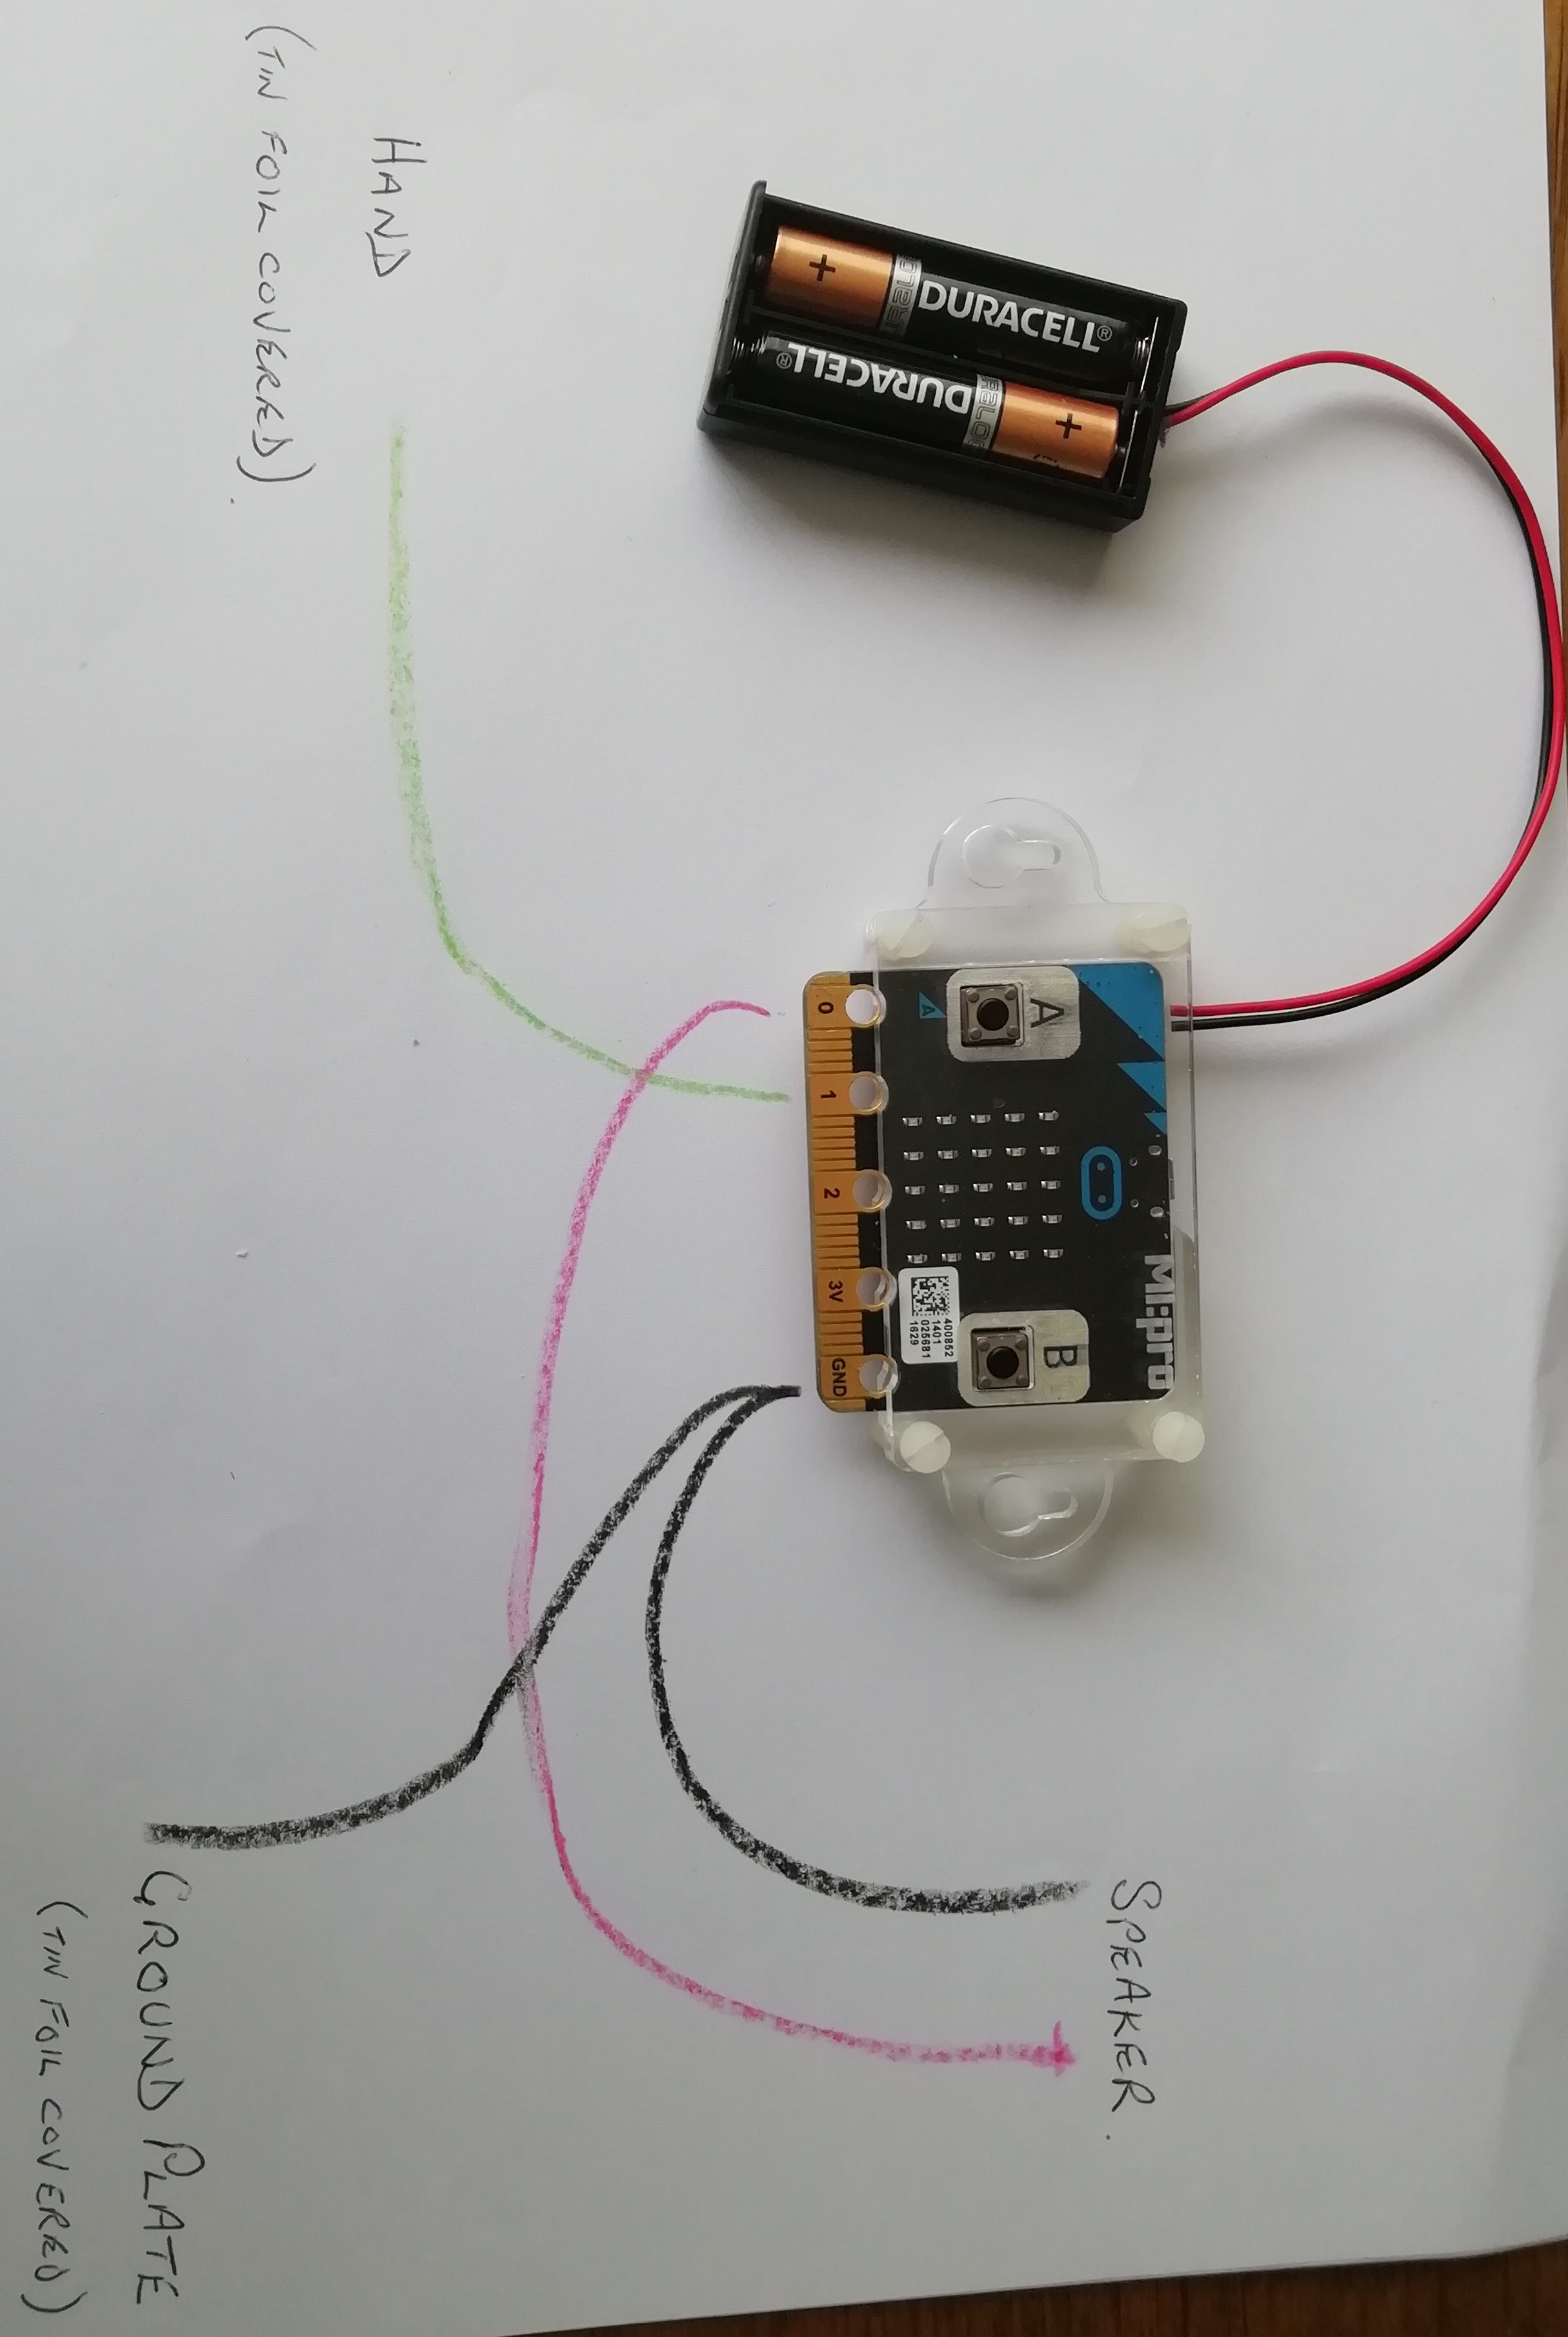 MI:pro
DURACELL®
+
DURACELL®
+
A
B
A
400852
1401
025681
1629
0
1
2
3V
GND
SPEAKER.
+
HAND
(TIN FOIL COVERED).
GROUND PLATE
(TIN FOIL COVERED)